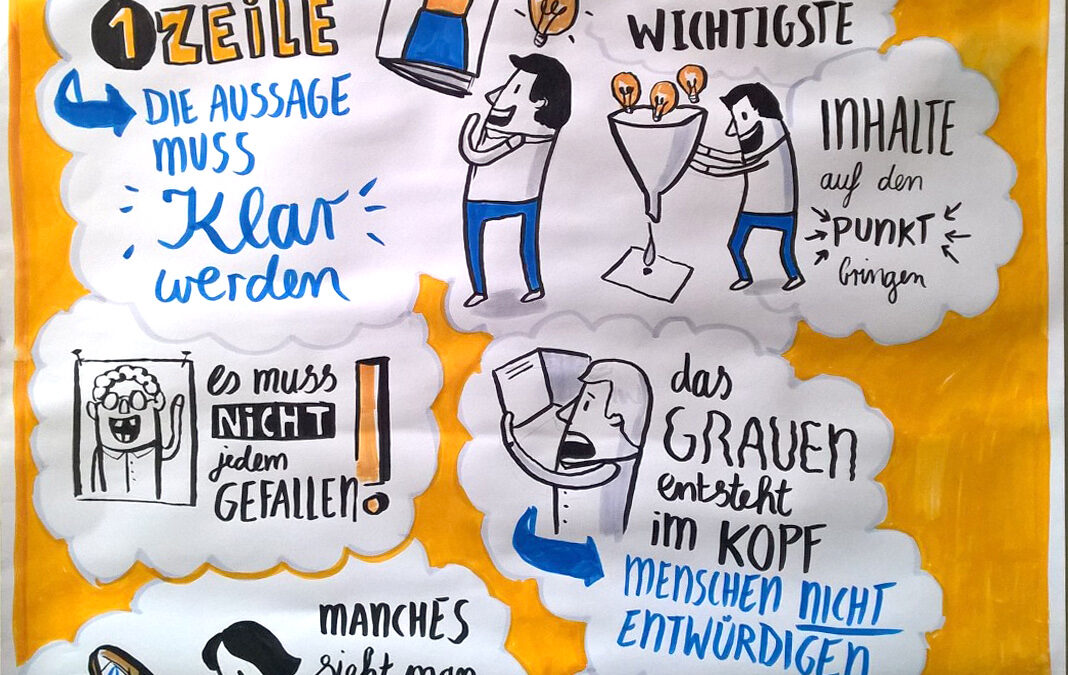 1 ZEILE
DIE AUSSAGE
MUSS
Klar
werden
WICHTIGSTE
INHALTE
auf den
PUNKT
bringen
es muss
NICHT
jedem
GEFALLEN!
das
GRAUEN
entsteht
im KOPF
MENSCHEN NICHT
ENTWÜRDIGEN
MANCHES
sieht man